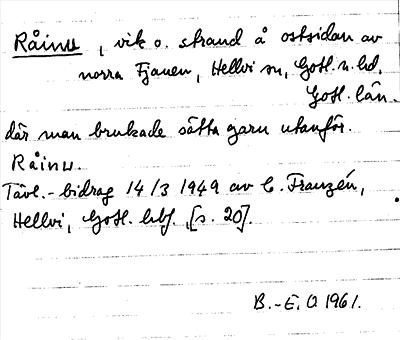 Råinu, vik o. strand å ostsidan av
norra Fjauen, Hellvi sn, Gotl. n. hd,
Gotl. län.
där man brukade sätta garn utanför.
Råinu.
Tävl.-bidrag 14/3 1949 av C. Franzén,
Hellvi, Gotl. lbf. [s. 20].
B.-E. O. 1961.